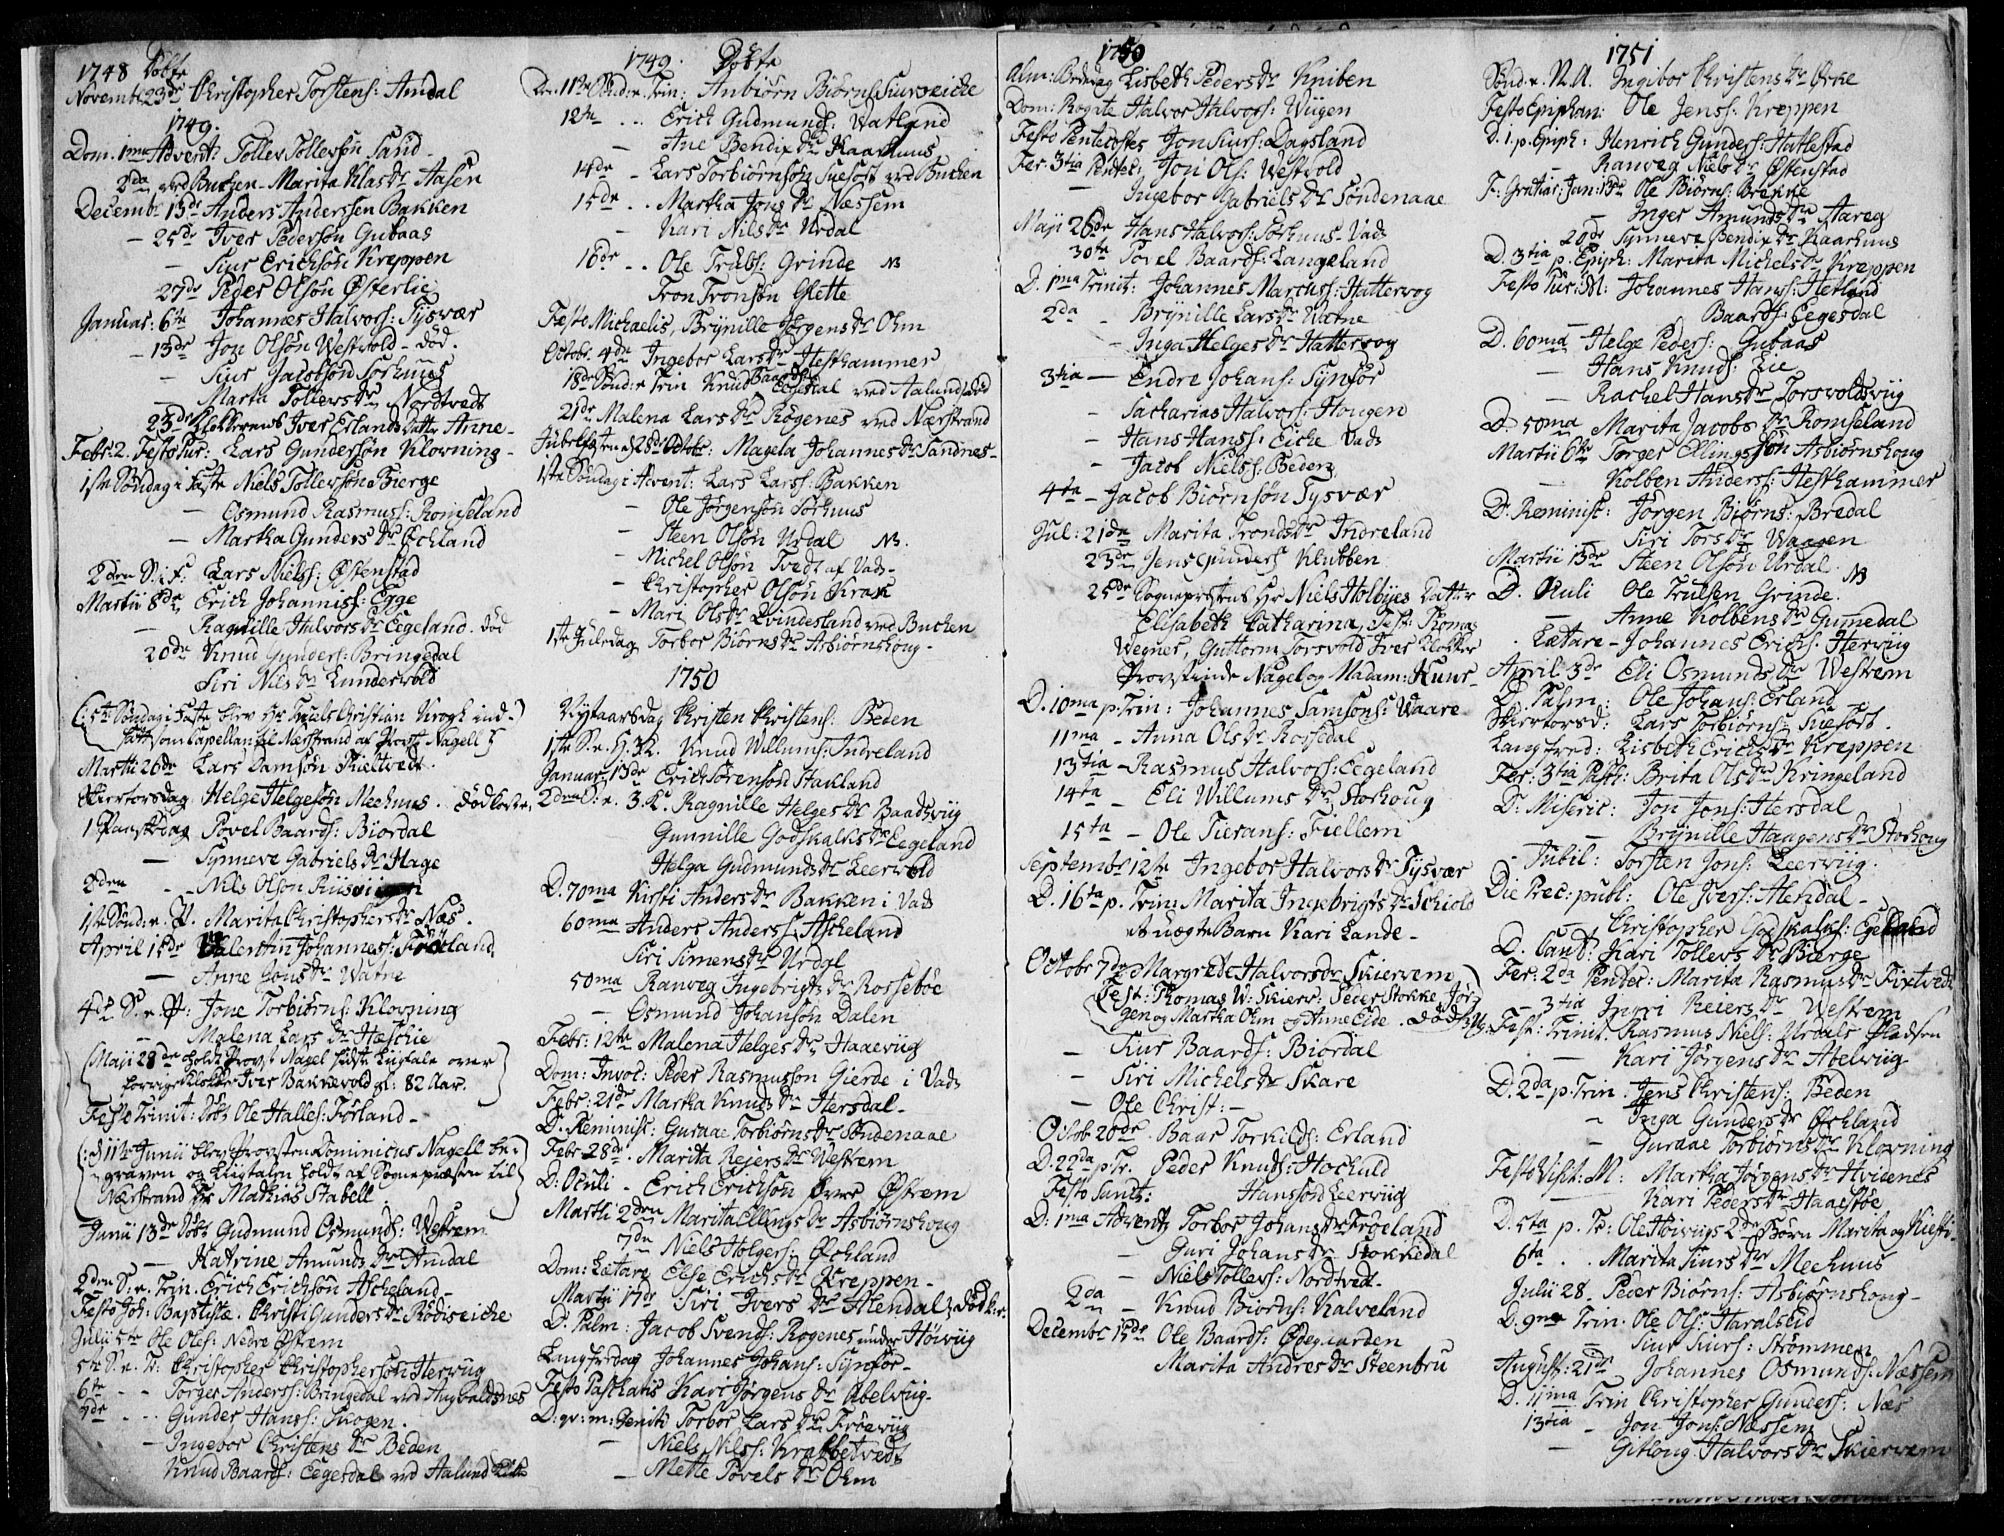 1748 Døbte
Novembr 23de Christopher Torstens: Amdal
1749.
Dom: 1ma Advent: Toller Tollersøn Sand
2da ved Buchen - Marita Klas Dr Aasen
Decembr 13de Anders Anderssen Bakken
- 25de Iver Pedersøn Gudaas
- Siur Erichsøn Kreppen
27de Peder Olsøn Østerlie
Januar: 6te Johannes Halvors: Tysvær
- 13de Jon Olsøn Westvold - død.
- Siur Jacobsøn Sørhuus
- Marta Tollers Dr Nordtvedt
23de Klokkerens Iver Erlands Datter Anne -
Febr: 2. Festo Pur: Lars Gundersøn Klovning -
1ste Søndag i Faste Niels Tollersøn Bierge
- Osmund Rasmuss: Romseland
- Martha Gunders Dr Ochland
2den S: i F: Lars Niels: Østenstad
Martii 8de Erich Johanniss: Egge
- Ragnille Halvors Dr Eegeland. død
20de Knud Gunders: Bringedal
Siri Nils Dr Lunderwold
(: 5te Søndag i Faste blev Hr Truels Christian Krogh ind-
satt som Capellan til Nerstrand av Provst Nagell :)
Martii 26de Lars Damsøn Tieltvedt.
Skiertorsdag Helge Helgesøn Meehuus. Død
1 Paaskedag Povel Baards: Biordal
- Synneve Gabriels Dr Hage
2den - - Nils Olsøn
1ste Sønd: e. P. Marita Christophers Dr Næs.
April 15de Valentin Johannes:
- Anne Jons Dr Watne
4de S. e. P: Jone Torbiørns: Klovning
- Malena Lars Dr
(Maji 28de holdt Provst Nagel sidste Liigtale over
forrige Klokker Iver Bakkevold gl: 82 Aar.)
Festo Trinit: Døbt Ole Halles: Førland -
(: d 11te Junii blev Provsten Dominicus Nagell be-
graven og Liigtalen holdt af Sognepræsten til
Nærstrand Hr Mathias Stabell :)
Junii 13de Døbt Gudmund Osmunds: Westrem
- Katrine Amunds Dr Amdal
2den S. e. Trin. Erich Erichsøn Ascheland -
Festo Joh: Baptistæ. Christi Gunders Dr Rødiseiche
Julii 5te Ole Oles: Nedre Østrem
5te S. e. Tr: Christopher Christophersøn Herviig
6te - - Torger Anderss: Bringedal ved Augvaldsnes
7de - - Gunder Hanss: Skogen.
- Ingebor Christens Dr Beden
Knud Baards: Eegesdal ved Aalund
1749. Døbte
Dn 11te Sønd: e. Trin: Anbiørn Biørns:
12te .. Erich Gudmunds: Vatland
- Ane Bendix Dr Kaarhuus
14de - Lars Torbiørnsøn Suefost ved Buchen
15de .. Martha Jons Dr Næssem
- Kari Nils Dr Urdal
16de .. Ole Truls: Grinde NB
Tron Tronsøn Glette
Festo Michaelis, Brynille Jørgens Dr Ohm
Octobr 4de Ingebor Lars Dr Hesthammer
18de Sønd: e Trin Knud Baards: Eegesdal ved Aalund død
21de Malena Lars Dr Røgenes ved Nærstrand
Jubelfesten d 28de Octobr: Magela Johannes Dr Sandnes -
1ste Søndag i Advent: Lars Larss: Bakken
- Ole Jørgensøn Sørhuus
- Steen Olsøn Urdal NB.
- Michel Olsøn Tvedt af Vads -
- Christopher Olsøn Krak
- Mari Ols Dr Qvindesland ved Buchen
1ste Juledag Torbor Biørns Dr Asbiørnshoug -
1750
Nytaarsdag Christen Christens: Beden
1ste S. e. H.3.K. Knud Willums: Indreland
Januar: 13de Erich Sørensøn Stakland
2den S: e. 3.K. Ragnille Helges Dr Baadsviig
Gunnille Godskalks Dr Eegeland
Helga Gudmunds Dr Leervold
D. 70ma Kirsti Anders Dr Bakken i Vads
60ma Anders Anderss: Ascheland
Siri Simens Dr Urdal
50ma Ranveg Ingebrigts Dr Rossebøe
- Osmund Johansøn Dalen
Febr: 12te Malena Helges Dr Haaeviig
Dom: Invoc: Peder Rasmussøn Gierde i Vads
Febr: 21de Martha Knuds Dr Hersdal -
D. Reminisc: Guraae Torbiørns Dr Søndenaae
Febr 28de. Marita Rejers Dr Westrem
D: Oculi - Erich Erichsøn Øvre Østrem
Martii 2den Marita Ellings Dr Asbiørnshoug
7de Niels Holgers: Ochland
Dom: Lætare Else Erichs Dr Kreppen -
Martii 17de Siri Ivers Dr Alendal,
D: Palm: Jacob Svends: Rogenes under Høiviig
Langfredag Johannes Johans: Synfør -
Festo Paschatis Kari Jørgens Dr Abelviig -
D: qv: m: Geniti Torbor Lars Dr Frøeviig
- Niels Nilss: Krabbetvedt
- Mette Povels Dr Ohm
1750
Alm: Bededag Lisbeth Peders Dr Kniben
Dom: Rogate Halvor Halvors: Wiigen
Festo Pentecostes Jon Siurs: Dagsland
Fer: 3tia Pentec: Jon Ols: Westvold
- Ingebor Gabriels Dr Søndenaae
Maji 26de Hans Halvors: Sørhuus - Vads
30te Povel Baards: Langeland
D. 1ma Trinit: Johannes Marcuss: Hattervog
2da - Brynille Lars Dr Watne
- Inga Helges Dr Hattervog
3tia - Endre Johans: Synfør
- Sacharias Halvors: Hougen
- Hans Hanss: Eiche Vads
- Jacob Nielss: Beden
4ta - Jacob Biørnsøn Tysvær
Jul: 21de Marita Tronds Dr Indreland
23de Jens Gunders: Klubben
25de Sognepræstens Hr Niels Holbyes Datter
Elisabeth Catharina, Test: Thomas
Wegner, Guttorm Torsvold Iver Klokker
Provstinde Nagel og Madam:
D. 10ma p. Trin: Johannes Samsons: Waare
11ma - Anna Ols Dr Rossedal
13tia - Rasmus Halvors: Eegeland
14ta - Eli Willums Dr Storhoug
15ta - Ole Tierans: Fiellem
Septembr 12te Ingebor Halvors Dr Tysvær
D. 16ta p. Trin: Marita Ingebrigts Dr Schiold
et uægte Barn Kari Lande -
Octobr 7de Margrede Halvors Dr Skiervem
(Test: Thomas W: Skierv: Peder Stokke, Jør-
gen og Martha Ohm og Anne Eide.
- Siur Baards: Biordal
- Siri Michels Dr Skare
- Ole Christ: -
Octob 20de. Baar Torkilds: Erland
D. 22da p Tr. Peder Knuds: Hochuld
Festo Sanct: Hanssøn Leerviig
D: 1ma Advent: Torbor Johans Dr Frøeland
- Guri Johans Dr Stokkedal
- Niels Tollers: Nordtvedt -
2da - Knud Biørns: Kalveland
Decembr 15de Ole Baards: Ødegaarden
Marita Andres Dr Steenbru
1751
Sønd: e. N.A. Ingibor Christens Dr Ørke
Festo Epiphan: Ole Jenss: Kreppen
D. 1. p. Epiph: Henrich Gunders: Hatlestad
- Ranveg Niels Dr Østenstad
F: Gratiar: Jan: 13de Ole Biørns: Brekke
- Inger Amunds Dr Aareg
20de Synneve Bendix Dr Kaarhuus
D. 3tia p. Epiph: Marita Michels Dr Kreppen
Festo Pur: M: Johannes Hans: Hetland
- Baards: Eegesdal
D. 60ma - Helge Peders: Gudaas
- Hans Knuds: Lie
- Rachel Hans Dr Torsvoldsviig
D. 50ma Marita Jacobs Dr Romseland
Martii 6te Torger Ellingssøn Asbiørnshoug
- Kolben Anders: Hesthammer
D. Reminisc: Jørgen Biørns: Bredal
- Siri Tors Dr Waagen
Martii 13de Steen Olsøn Urdal. NB
D. Oculi Ole Trulsen Grinde.
- Anne Kolbens Dr Gumedal
Lætare - Johannes Erichs: Herviig
April 3de Eli Osmunds Dr Westrem
D. Palm: Ole Johans: Erland
Skiertorsd: Lars Torbiørns: Suefost.
Langfred: Lisbeth Erichs Dr Kreppen
Fer: 3tia Pasch: Brita Ols Dr Kringeland
D: Miseric: Jon Jons: Hersdal
- Brynille Haagens Dr Storhoug
- Jubil: Torsten Jons: Leerviig.
Die Prec: publ: Ole Ivers: Alendal -
- Christopher Godskalks: Egeland
D. Cant: Kari Tollers Dr Bierge
Fer: 2da Pentec: Marita Rasmus Dr Fixtvedt
- 3tia Ingri Reiers Dr Westrem
Fest: Trinit. Rasmus Niels: Urdals Pladsen
- Kari Jørgens Dr Abelviig
D. 2da p. Trin: Jens Christens: Beden
- Inga Gunders Dr Ochland
- Guraae Torbiørns Dr Klovning
Festo Visit: M: Martha Jørgens Dr Hvidenes
- Kari Peders Dr Haaestøe
D. 5ta p. Tr: Ole Høiviigs 2de Børn Marita og Kirsti.
6ta . . Marita Siurs Dr Meehuus
Julii 28. Peder Biørns: Asbiørnshoug -
D. 9na Trin: Ole Ols: Haralseid
Siur Siurs: Strømmen
August: 21de Johannes Osmunds: Næssem
D. 11ma Trin Christopher Gunders: Næs
13tia - Jon Jons: Næssem
- Gitloug Halvors Dr Skiervem